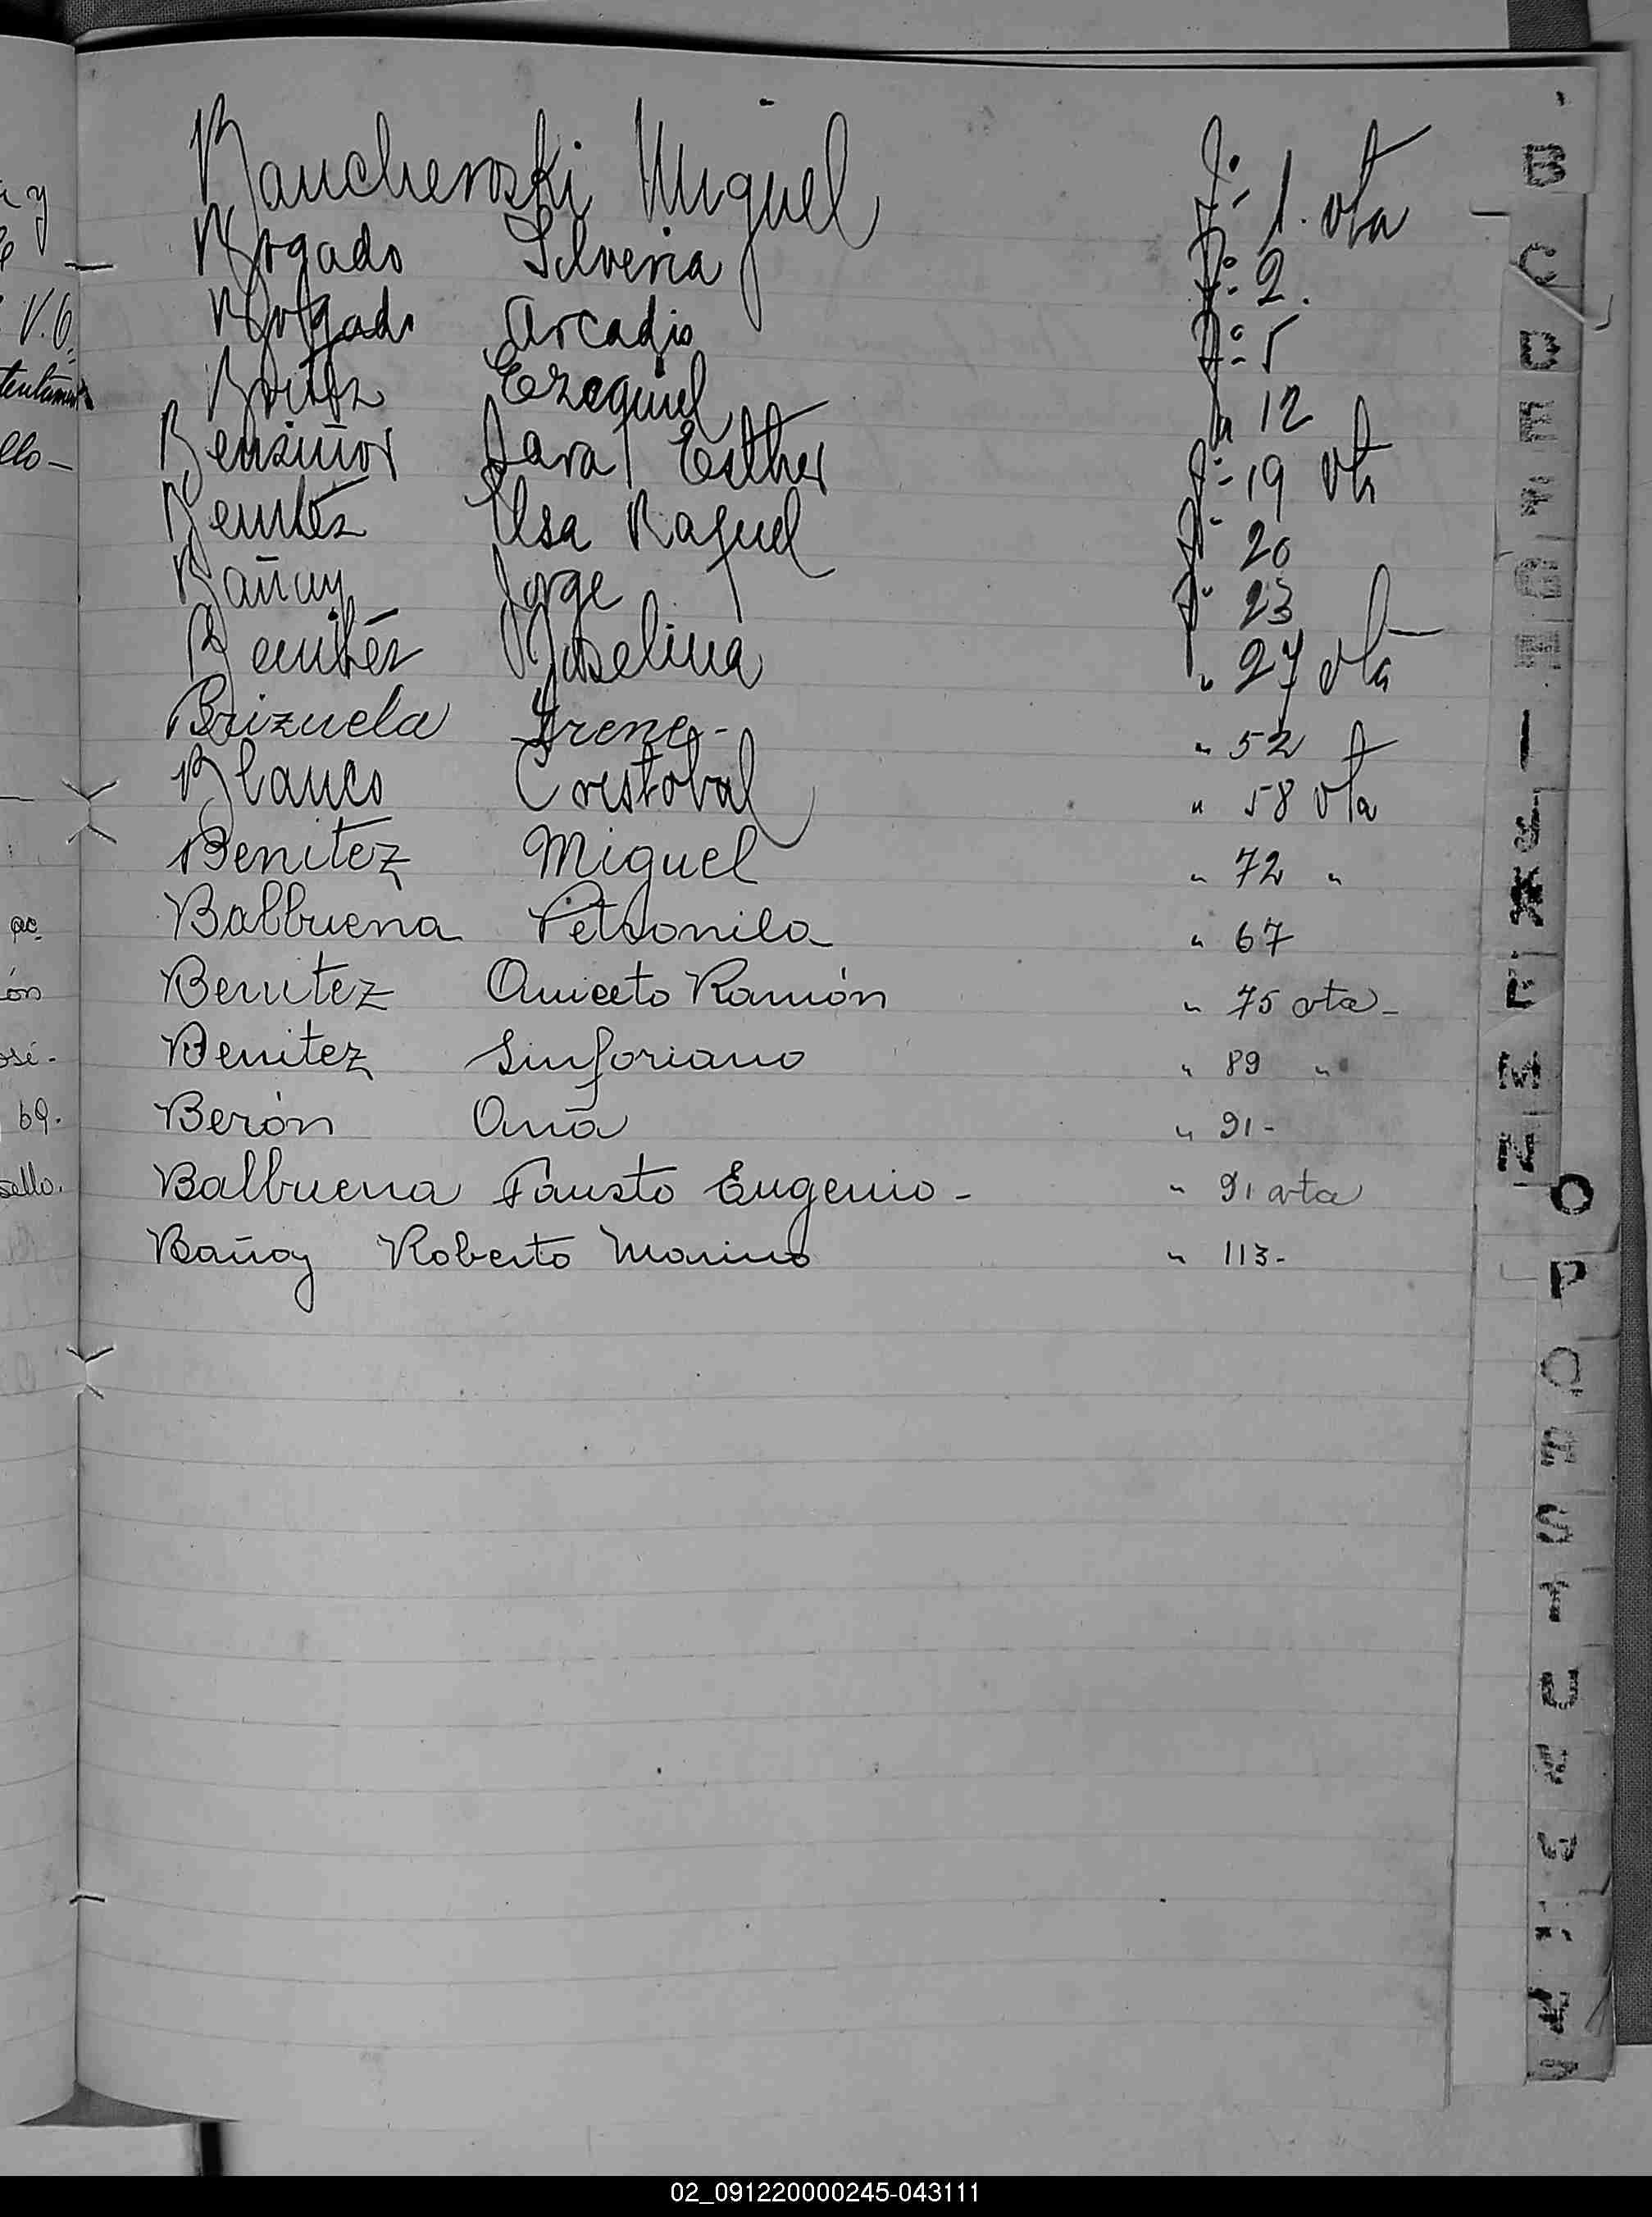 Baucheroski Miguel Fº 1. vta
Bogado Silveria Fº 2.
Bogado Arcadio Fº 5
Britez Ezequiel " 12
Bensiñor Sara Esther Fº 19 vta
Benítez Elsa Raquel Fº 20
Bañay Jorge Fº 23
Benítez Joselina " 27 vta
Brizuela Irene - " 52
Blanco Cristobal " 58 vta
Benitez Miguel " 72 "
Balbuena Petronila " 67
Benitez Aniceto Ramón " 75 vta -
Benitez Sinforiano " 89 "
Berón Ana " 91 -
Balbuena Fausto Eugenio - " 91 vta
Bañay Roberto Marino " 113 -
B
C
D
E
F
G
H
I
K
L
M
N
O
P
Q
R
S
T
02_091220000245-043111